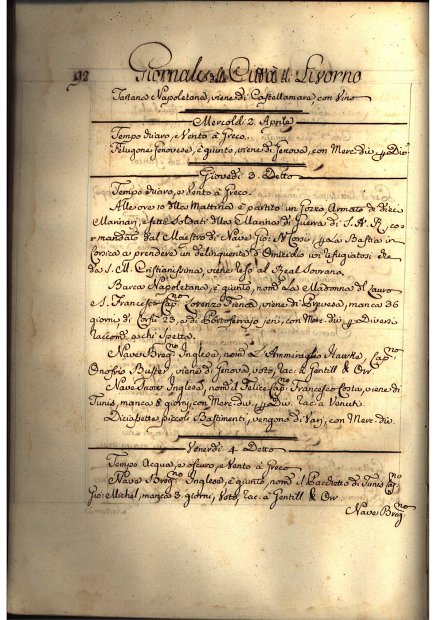 92 Giornale della Città di Livorno
Tartana Napoletana, viene di Castellamara, con Vino
Mercoldì 2. Aprile
Tempo chiaro, e Vento à Greco.
Felugone Genovese, è giunto, viene di Genova, con Merc. div.
Giovedì 3. Detto
Tempo chiaro, e Vento à Greco.
Alle ore 10 della Mattina è partito un Gozzo Armato di dieci
Marinari, e sette Soldati della Marina di Guerra di S. A. R. co=
mandato dal Maestro di Nave Gio: per la Bastia in
Corsica a prendere un delinquente d'Omicidio ivi refugiatosi che
da S. M. Cristianissima, viene reso al Real Sovrano.
Barco Napoletano, è giunto, nomº La Madonna di Lauro
e S. Francesco Capno Lorenzo viene di Prevesa, manca 36
giorni di Costì 23, e di Portoferrajo jeri, con Merc. div. p Diversi
Raccomº a chi Spetta.
Nave Bregno Inglese, nomº L'Ammiraglio Hawke, Capno
Onofrio viene di Genova, voto, rac. a Gentill & Orr
Nave Snow Inglese, nomº il Felice Capno Francesco Costa, viene di
Tunis, manca 8 giorni, con Merc. div. p Div. rac. a Venuti
Diciasette piccoli Bastimenti, vengono di Varj, con Merc. div.
Venerdì 4. Detto
Tempo Acqua, e oscuro, e Vento à Greco
Nave Bregno Inglese, è giunto, nomº il Pacchetto di Tunis Capno
Gio: Michel, manca 3. giorni, Voto, rac. a Gentill & Orr
Nave Bregno